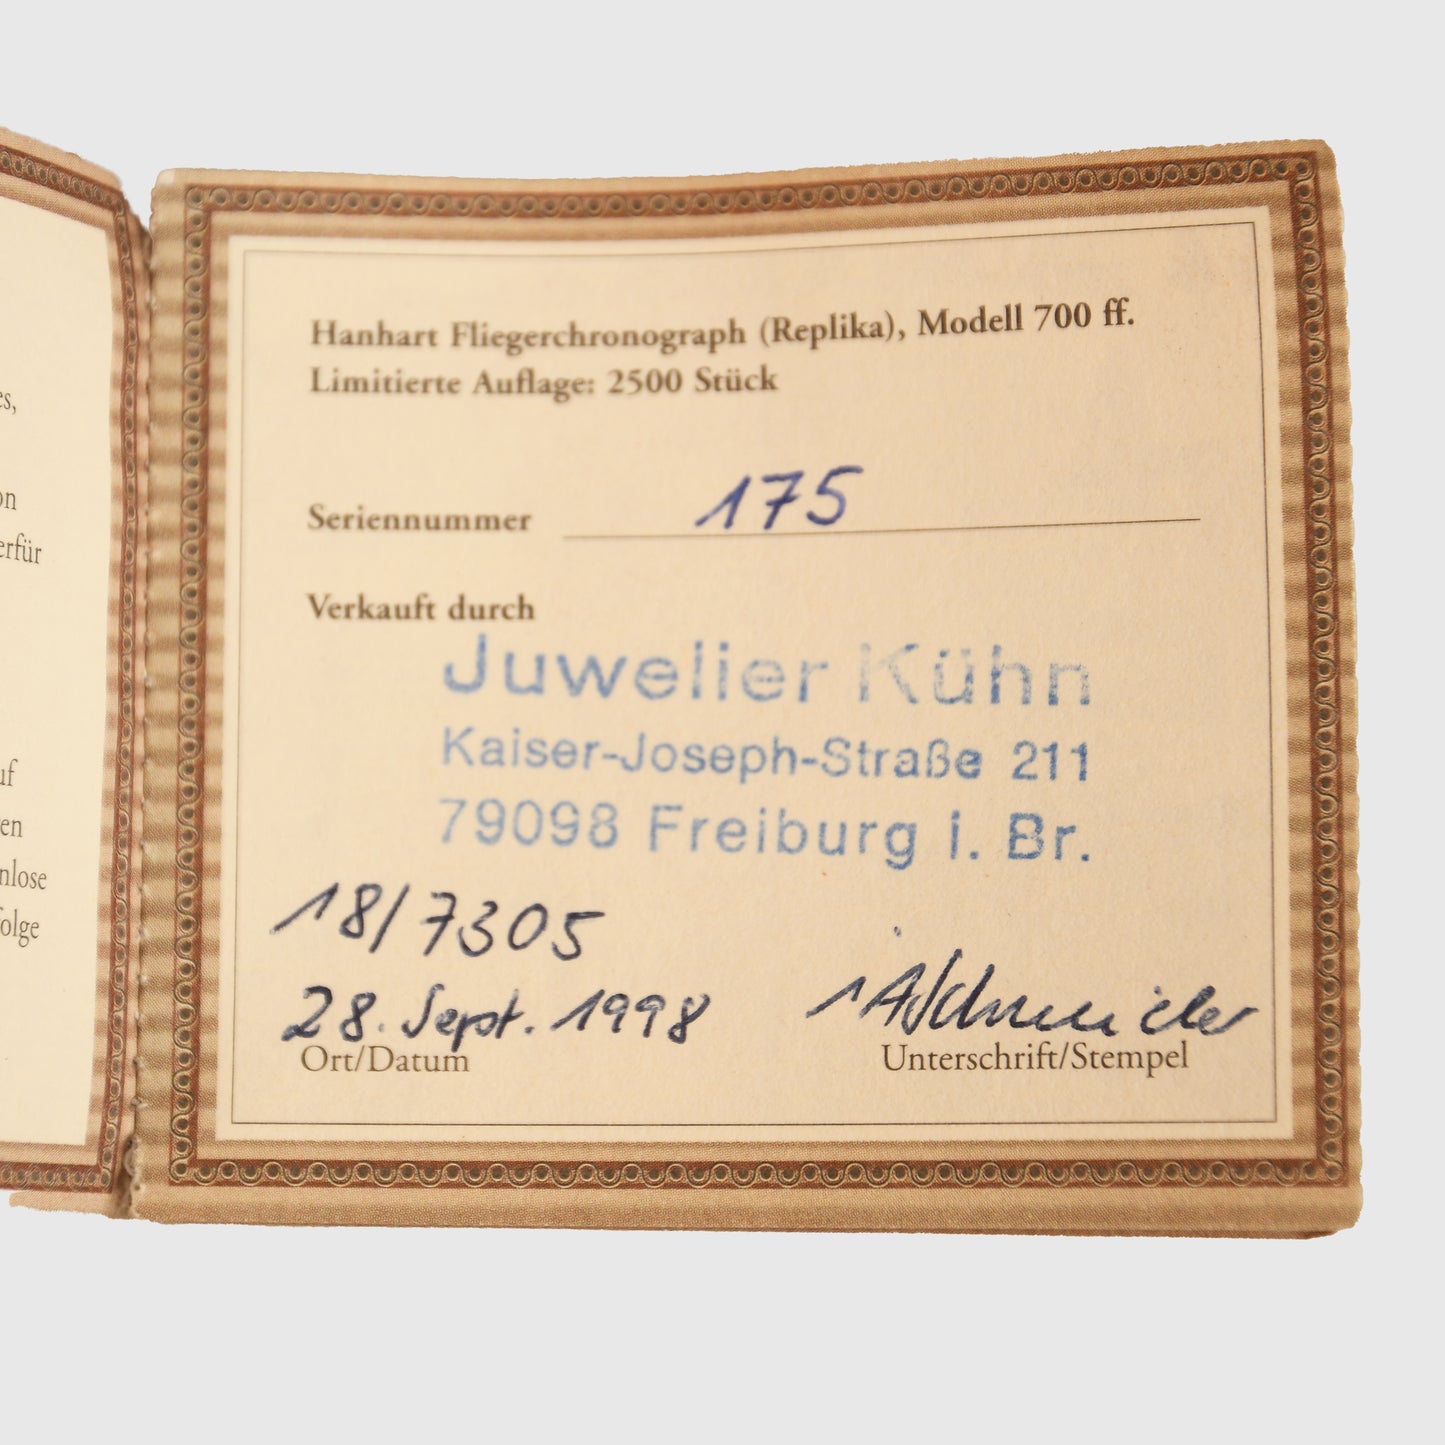 es,
on
erfür
uf
en
nlose
folge
Hanhart Fliegerchronograph (Replika), Modell 700 ff.
Limitierte Auflage: 2500 Stück
Seriennummer 175
Verkauft durch
Juwelier Kühn
Kaiser-Joseph-Straße 211
79098 Freiburg i. Br.
18/7305
28. Sept. 1998
Ort/Datum Unterschrift/Stempel